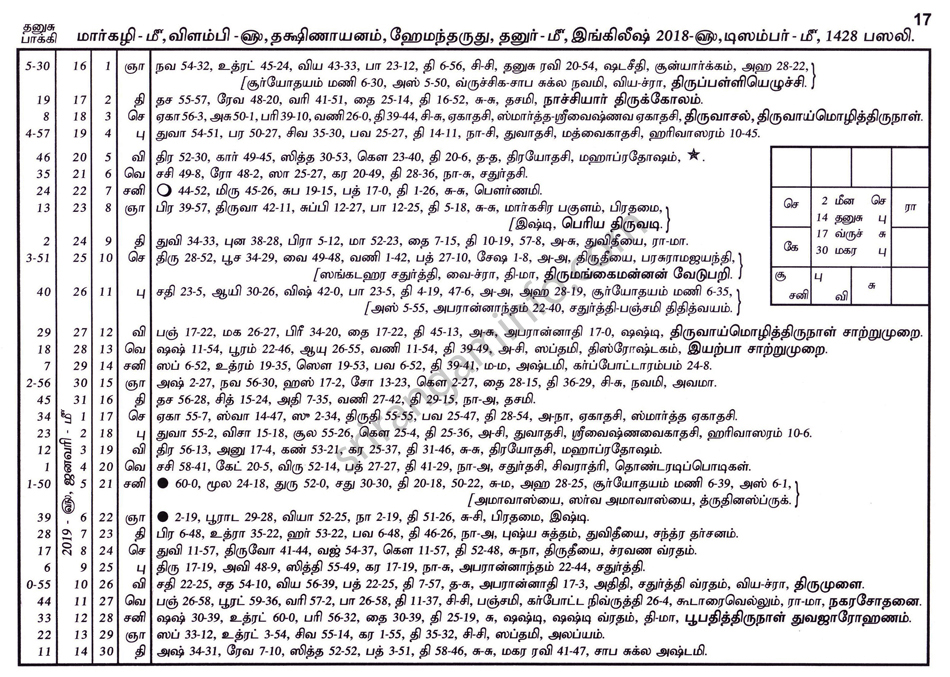 17
தனுசு பாக்கி மார்கழி - மீ, விளம்பி - ௵, தக்ஷிணாயனம், ஹேமந்தருது, தனுர் - மீ, இங்கிலீஷ் 2018-௵, டிஸம்பர் - மீ, 1428 பஸலி.
5-30 16 1 ஞா நவ 54-32, உத்ரட் 45-24, விய 43-33, பா 23-12, தி 6-56, சி-சி, தனுசு ரவி 20-54, ஷடசீதி, சூன்யார்க்கம், அஹ 28-22,
[சூர்யோதயம் மணி 6-30, அஸ் 5-50, வ்ருச்சிக-சாப சுக்ல நவமி, விய-ச்ரா, திருப்பள்ளியெழுச்சி.
19 17 2 தி தச 55-57, ரேவ 48-20, வரி 41-51, தை 25-14, தி 16-52, சு-சு, தசமி, நாச்சியார் திருக்கோலம்.
8 18 3 செ ஏகா 56-3, அசு 50-1, பரி 39-10, வணி 26-0, தி 39-44, சி-சு, ஏகாதசி, ஸ்மார்த்த-ஸ்ரீவைஷ்ணவ ஏகாதசி, திருவாசல், திருவாய்மொழித்திருநாள்.
4-57 19 4 பு துவா 54-51, பர 50-27, சிவ 35-30, பவ 25-27, தி 14-11, நா-சி, துவாதசி, மத்வைகாதசி, ஹரிவாஸரம் 10-45.
46 20 5 வி திர 52-30, கார் 49-45, ஸித்த 30-53, கௌ 23-40, தி 20-6, த-த, திரயோதசி, மஹாப்ரதோஷம், ★.
35 21 6 வெ சசி 49-8, ரோ 48-2, ஸா 25-27, கர 20-49, தி 28-36, நா-சு, சதுர்தசி.
24 22 7 சனி ○ 44-52, மிரு 45-26, சுப 19-15, பத் 17-0, தி 1-26, சு-சு, பௌர்ணமி.
13 23 8 ஞா பிர 39-57, திருவா 42-11, சுப்பி 12-27, பா 12-25, தி 5-18, சு-சு, மார்கசிர பகுளம், பிரதமை,
[இஷ்டி, பெரிய திருவடி.
2 24 9 தி துவி 34-33, புன 38-28, பிரா 5-12, மா 52-23, தை 7-15, தி 10-19, 57-8, அ-சு, துவிதீயை, ரா-மா.
3-51 25 10 செ திரு 28-52, பூச 34-29, வை 49-48, வணி 1-42, பத் 27-10, சேஷ 1-8, அ-அ, திருதீயை, பரசுராமஜயந்தி,
[ஸங்கடஹர சதுர்த்தி, வை-ச்ரா, தி-மா, திருமங்கைமன்னன் வேடுபறி.
40 26 11 பு சதி 23-5, ஆயி 30-26, விஷ் 42-0, பா 23-5, தி 4-19, 47-6, அ-அ, அஹ 28-19, சூர்யோதயம் மணி 6-35,
[அஸ் 5-55, அபரான்னாந்தம் 22-40, சதுர்த்தி-பஞ்சமி திதித்வயம்.
29 27 12 வி பஞ் 17-22, மக 26-27, பிரீ 34-20, தை 17-22, தி 45-13, அ-சு, அபரான்னாதி 17-0, ஷஷ்டி, திருவாய்மொழித்திருநாள் சாற்றுமுறை.
18 28 13 வெ ஷஷ் 11-54, பூரம் 22-46, ஆயு 26-55, வணி 11-54, தி 39-49, அ-சி, ஸப்தமி, திஸ்ரோஷ்டகம், இயற்பா சாற்றுமுறை.
7 29 14 சனி ஸப் 6-52, உத்ரம் 19-35, ஸௌ 19-53, பவ 6-52, தி 39-41, ம-ம, அஷ்டமி, கர்ப்போட்டாரம்பம் 24-8.
2-56 30 15 ஞா அஷ் 2-27, நவ 56-30, ஹஸ் 17-2, சோ 13-23, கௌ 2-27, தை 28-15, தி 36-29, சி-சு, நவமி, அவமா.
45 31 16 தி தச 56-28, சித் 15-24, அதி 7-35, வணி 27-42, தி 29-15, நா-அ, தசமி.
2019 - ௵, ஜனவரி - மீ
34 1 17 செ ஏகா 55-7, ஸ்வா 14-47, ஸு 2-34, திருதி 55-55, பவ 25-47, தி 28-54, அ-நா, ஏகாதசி, ஸ்மார்த்த ஏகாதசி.
23 2 18 பு துவா 55-2, விசா 15-18, சூல 55-26, கௌ 25-4, தி 25-36, அ-சி, துவாதசி, ஸ்ரீவைஷ்ணவைகாதசி, ஹரிவாஸரம் 10-6.
12 3 19 வி திர 56-13, அனு 17-4, கண் 53-21, கர 25-37, தி 31-46, சு-சு, திரயோதசி, மஹாப்ரதோஷம்.
1 4 20 வெ சசி 58-41, கேட் 20-5, விரு 52-14, பத் 27-27, தி 41-29, நா-அ, சதுர்தசி, சிவராத்ரி, தொண்டரடிப்பொடிகள்.
1-50 5 21 சனி ● 60-0, மூல 24-18, துரு 52-0, சது 30-30, தி 20-18, 50-22, சு-ம, அஹ 28-25, சூர்யோதயம் மணி 6-39, அஸ் 6-1,
[அமாவாஸ்யை, ஸர்வ அமாவாஸ்யை, த்ருதினஸ்ப்ருக்.
39 6 22 ஞா ● 2-19, பூராட 29-28, வியா 52-25, நா 2-19, தி 51-26, சு-சி, பிரதமை, இஷ்டி.
28 7 23 தி பிர 6-48, உத்ரா 35-22, ஹர் 53-22, பவ 6-48, தி 46-26, நா-அ, புஷ்ய சுத்தம், துவிதீயை, சந்த்ர தர்சனம்.
17 8 24 செ துவி 11-57, திருவோ 41-44, வஜ் 54-37, கௌ 11-57, தி 52-48, சு-நா, திருதீயை, ச்ரவண வ்ரதம்.
6 9 25 பு திரு 17-19, அவி 48-9, ஸித்தி 55-49, கர 17-19, நா-சு, அபரான்னாந்தம் 22-44, சதுர்த்தி.
0-55 10 26 வி சதி 22-25, சத 54-10, விய 56-39, பத் 22-25, தி 7-57, த-சு, அபரான்னாதி 17-3, அதிதி, சதுர்த்தி வ்ரதம், விய-ச்ரா, திருமுளை.
44 11 27 வெ பஞ் 26-58, பூரட் 59-36, வரி 57-2, பா 26-58, தி 11-37, சி-சி, பஞ்சமி, கர்போட்ட நிவ்ருத்தி 26-4, கூடாரைவெல்லும், ரா-மா, நகரசோதனை.
33 12 28 சனி ஷஷ் 30-39, உத்ரட் 60-0, பரி 56-32, தை 30-39, தி 25-19, சு, ஷஷ்டி, ஷஷ்டி வ்ரதம், தி-மா, பூபதித்திருநாள் துவஜாரோஹணம்.
22 13 29 ஞா ஸப் 33-12, உத்ரட் 3-54, சிவ 55-14, கர 1-55, தி 35-32, சி-சி, ஸப்தமி, அலப்யம்.
11 14 30 தி அஷ் 34-31, ரேவ 7-10, ஸித்த 52-52, பத் 3-51, தி 58-46, சு-சு, மகர ரவி 41-47, சாப சுக்ல அஷ்டமி.
செ 2 மீன செ ரா
14 தனுசு பு
கே 17 வ்ருச் சு
30 மகர பு
சூ சனி பு வி சு
srirangaminfo.com